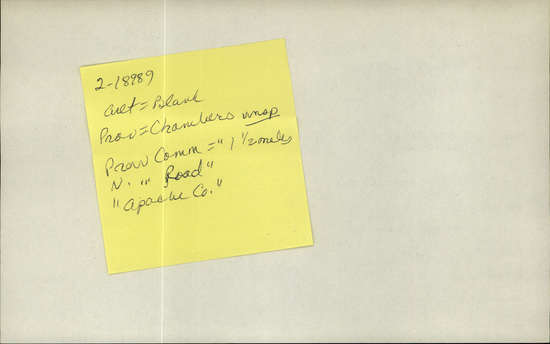 2-18989
Cult = Blank
Prov = Chambers unsp
Prov Comm = "1 1/2 miles
N. "" Road"
"Apache Co."